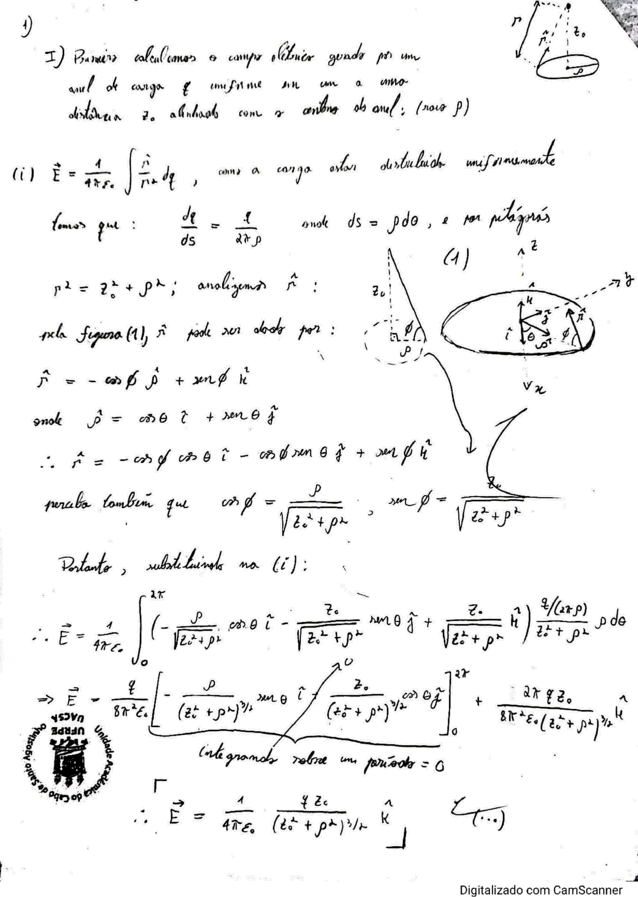 1)
I) Primeiro calculamos o campo elétrico gerado por um
anel de carga q uniforme em um a uma
distância z₀ alinhado com o centro do anel: (raio ρ)
r z₀ r̂ ρ
(i) E⃗ = 1/4πε₀ ∫ r̂/r² dq, como a carga estar distribuída uniformemente
temos que: dq/ds = q/2πρ onde ds = ρdθ, e por pitágorás
r² = z₀² + ρ²; analizemos r̂:
(1)
z₀ ϕ ρ
z y x k̂ ĵ î θ ρ̂ r̂ ϕ
pela figura (1), r̂ pode ser dado por:
r̂ = - cosϕ ρ̂ + senϕ k̂
onde ρ̂ = cosθ î + senθ ĵ
∴ r̂ = -cosϕ cosθ î - cosϕ senθ ĵ + senϕ k̂
perceba também que cosϕ = ρ/√(z₀² + ρ²), senϕ = z₀/√(z₀² + ρ²)
Portanto, substituindo na (i):
∴ E⃗ = 1/4πε₀ ∫₀²π (- ρ/√(z₀²+ρ²) cosθ î - z₀/√(z₀²+ρ²) senθ ĵ + z₀/√(z₀²+ρ²) k̂) q/(2πρ)/(z₀²+ρ²) ρdθ
⇒ E⃗ = q/8π²ε₀ [- ρ/(z₀²+ρ²)^3/2 senθ î - z₀/(z₀²+ρ²)^3/2 cosθ ĵ]₀²π + 2πqz₀/8π²ε₀(z₀²+ρ²)^3/2 k̂
0
integrando sobre um período = 0
∴ E⃗ = 1/4πε₀ qz₀/(z₀²+ρ²)^3/2 k̂
(...)
Unidade Acadêmica do Cabo de Santo Agostinho
UFRPE
UACSA
Digitalizado com CamScanner